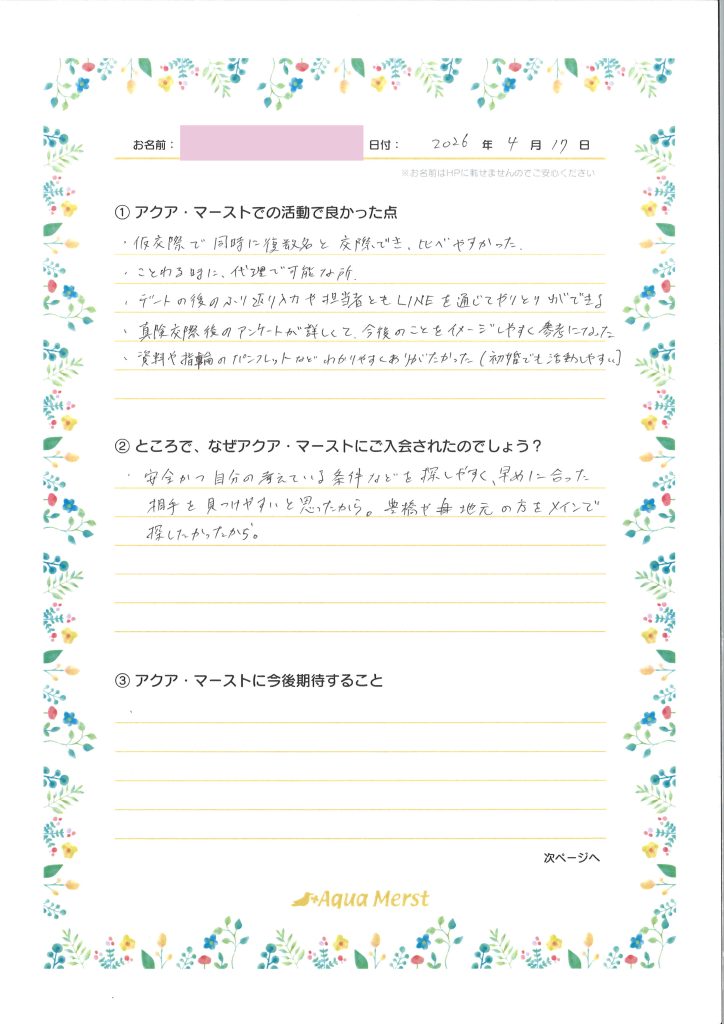 お名前： 日付： 2026 年 4 月 17 日
※お名前はHPに載せませんのでご安心ください
① アクア・マーストでの活動で良かった点
・仮交際で同時に複数名と交際でき、比べやすかった.
・ことわる時に、代理で可能な所.
・デートの後のふり返り入力や担当者ともLINEを通じてやりとりができる
・真険交際後のアンケートが詳しくて、今後のことをイメージしやすく参考になった
・資料や指輪のパンフレットなどわかりやすくありがたかった(初婚でも活動しやすい)
② ところで、なぜアクア・マーストにご入会されたのでしょう？
・安全かつ自分の考えている条件などを探しやすく、早めに合った
相手を見つけやすいと思ったから。豊橋や地元の方をメインで
探したかったから。
③ アクア・マーストに今後期待すること
次ページへ
Aqua Merst